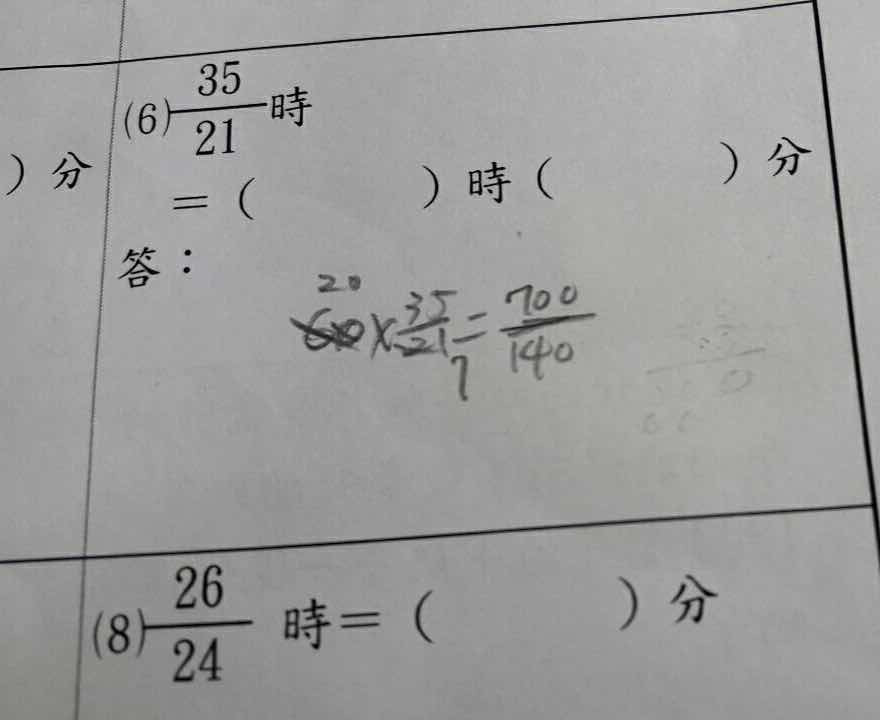 (6) 35/21 時
) 分
= ( ) 時 ( ) 分
答：
20
60 × 35/21 = 700/140
7
(8) 26/24 時 = ( ) 分